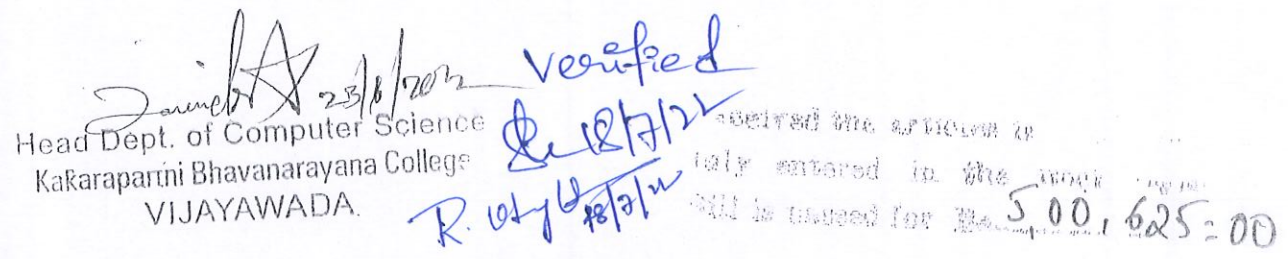 23/6/2022
Head Dept. of Computer Science
Kakaraparthi Bhavanarayana College
VIJAYAWADA.
Verified
18/7/22
R. 18/7/22
received the articles in
entered in the stock
Bill is passed for Rs. 5,00,625=00